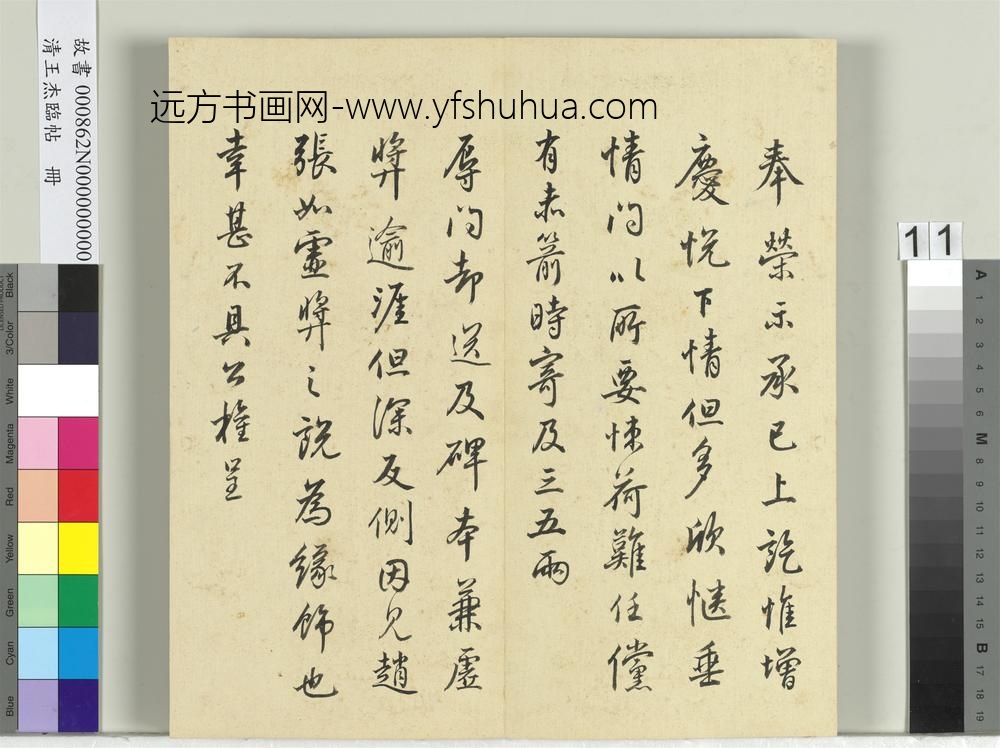 远方书画网-www.yfshuhua.com
故書 000862N000000000
清王杰臨帖 冊
奉榮示承已上訖惟增
慶悅下情但多欣惬垂
情問以所要悚荷難任儻
有赤箭時寄及三五兩
辱問却送及碑本兼虛
獎逾涯但深反側因見趙
張如靈獎之說為緣飾也
幸甚不具公權呈
11
Black
3/Color
White
Magenta
Red
Yellow
Green
Cyan
Blue
A
1
2
3
4
5
6
M
8
9
10
11
12
13
14
15
B
17
18
19